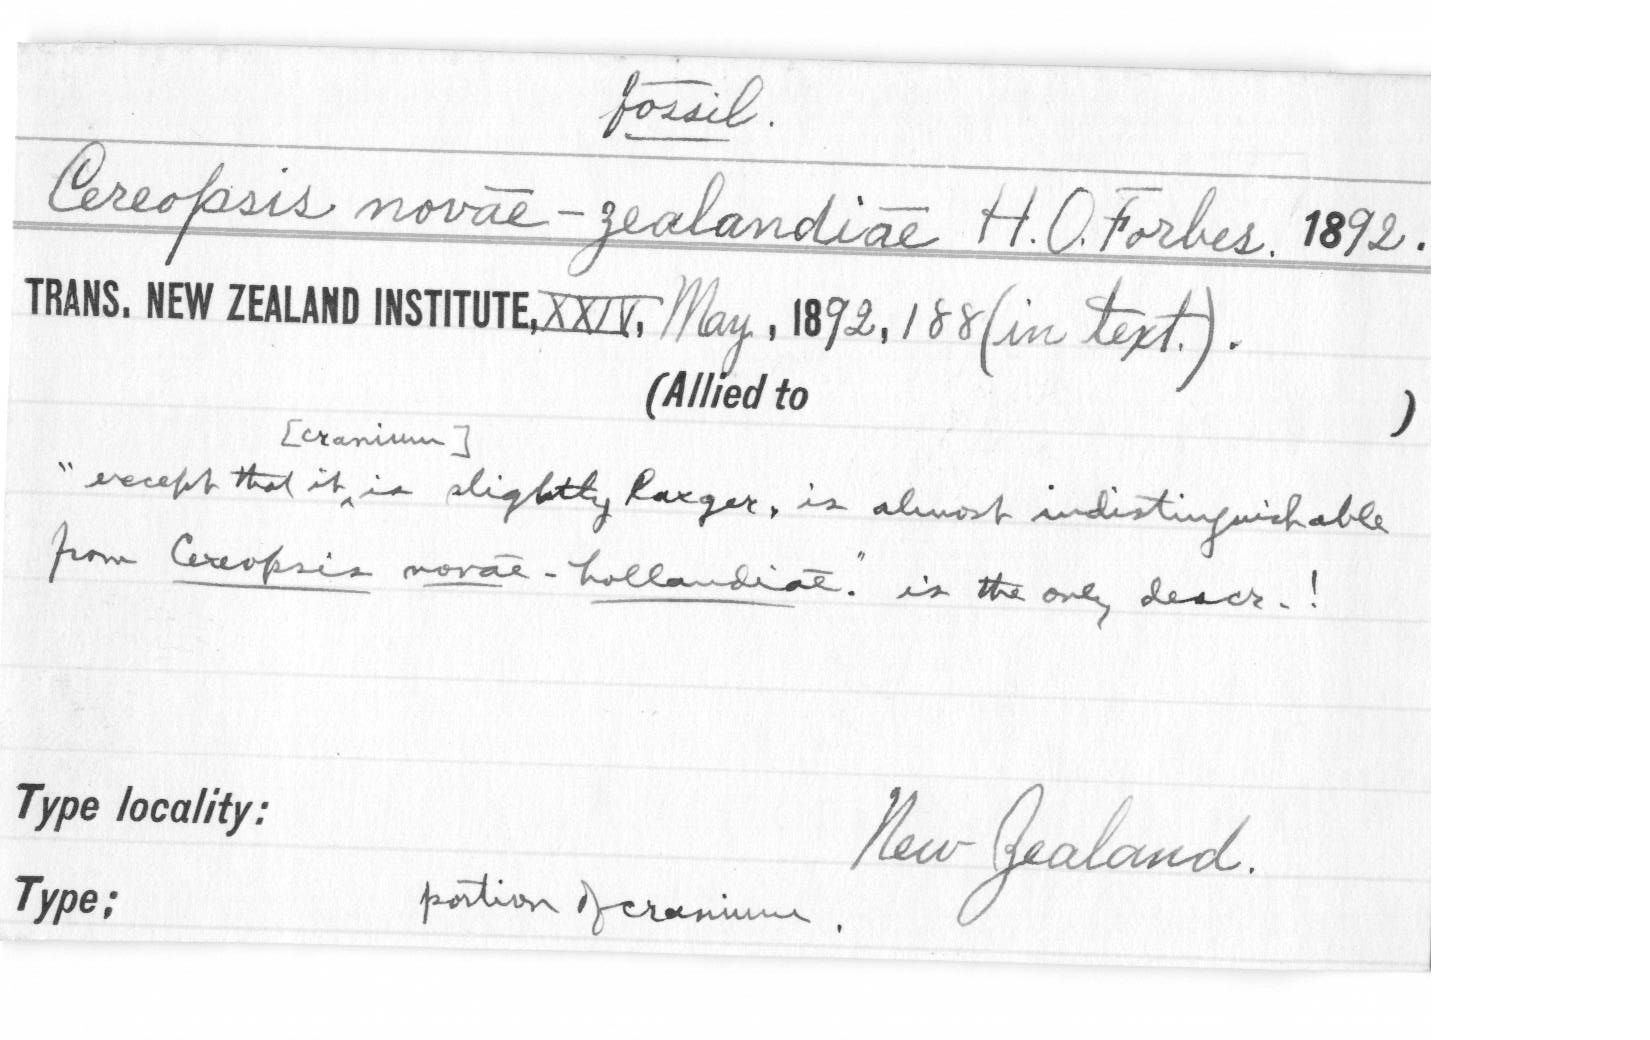 fossil.
Cereopsis novae-zealandiae H.O. Forbes. 1892.
TRANS. NEW ZEALAND INSTITUTE, XXIV, May, 1892, 188 (in text.).
(Allied to )
[cranium]
"except that it ‸ is slightly larger, is almost indistinguishable
from Cereopsis novae-hollandiae." is the only descr.!
Type locality: New Zealand.
Type; portion of cranium.